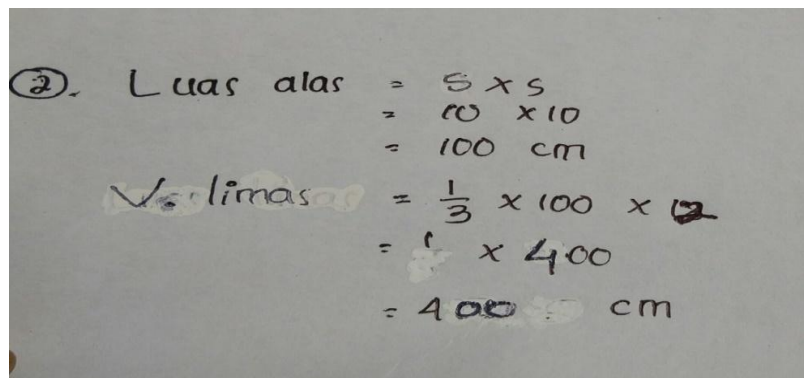 2. Luas alas = S x S
= 10 x 10
= 100 cm
V. limas = 1/3 x 100 x 12
= 1 x 400
= 400 cm